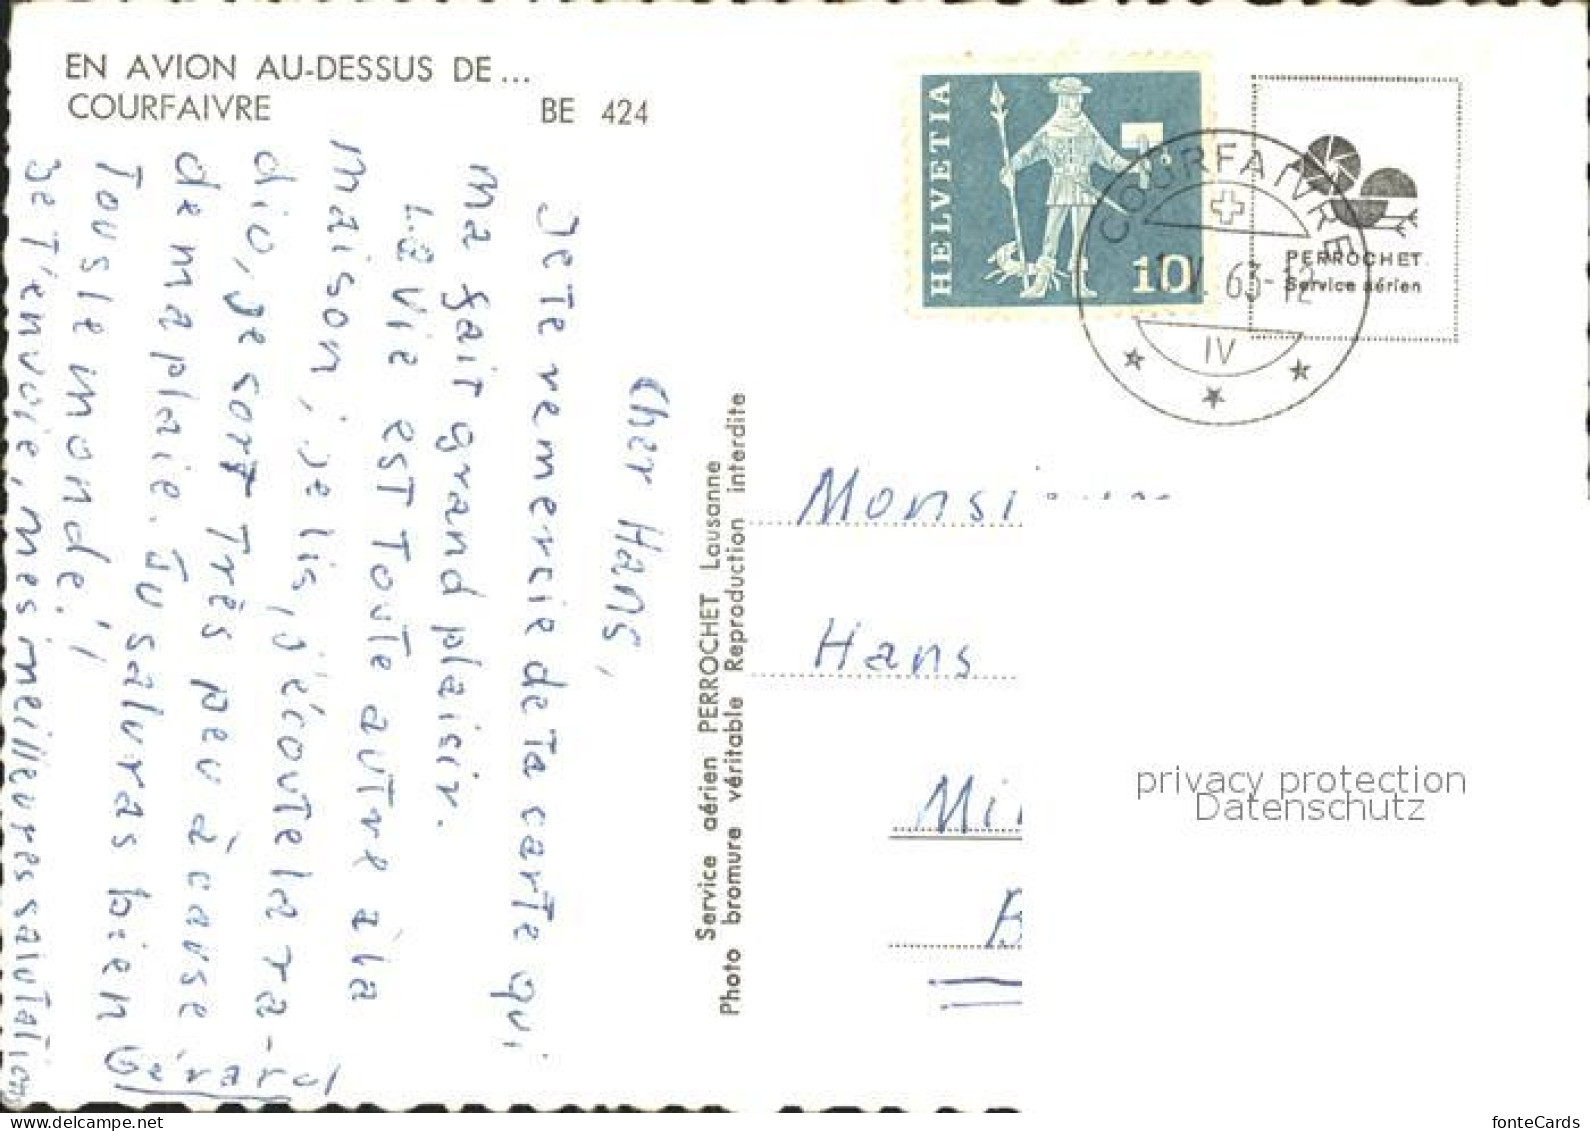 EN AVION AU-DESSUS DE...
COURFAIVRE
BE 424
HELVETIA
10
COURFAIVRE
V. 63-12
IV
PERROCHET
Service aérien
Cher Hans,
Je te remercie de ta carte qui
ma fait grand plaisir.
La vie est toute autre à la
maison, je lis, j'écoute la ra-
dio, je sort très peu à cause
de ma plaie. Tu saluras bien
tous le monde.
Je t'envoie, mes meilleures salutations
Gérard
Service aérien PERROCHET Lausanne
Photo bromure véritable Reproduction interdite
Monsi
Hans
privacy protection
Datenschutz
fonteCards